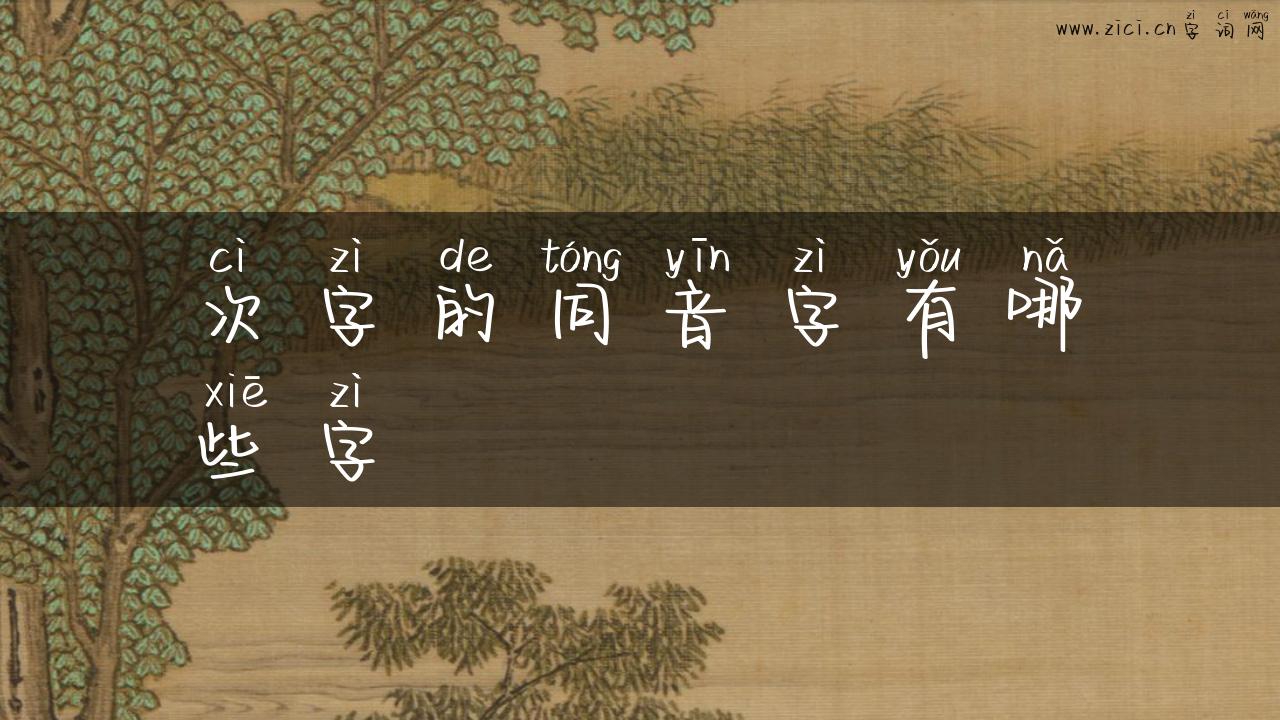 zì cí wǎng
www.zici.cn字词网
cì zì de tóng yīn zì yǒu nǎ
次字的同音字有哪
xiē zì
些字